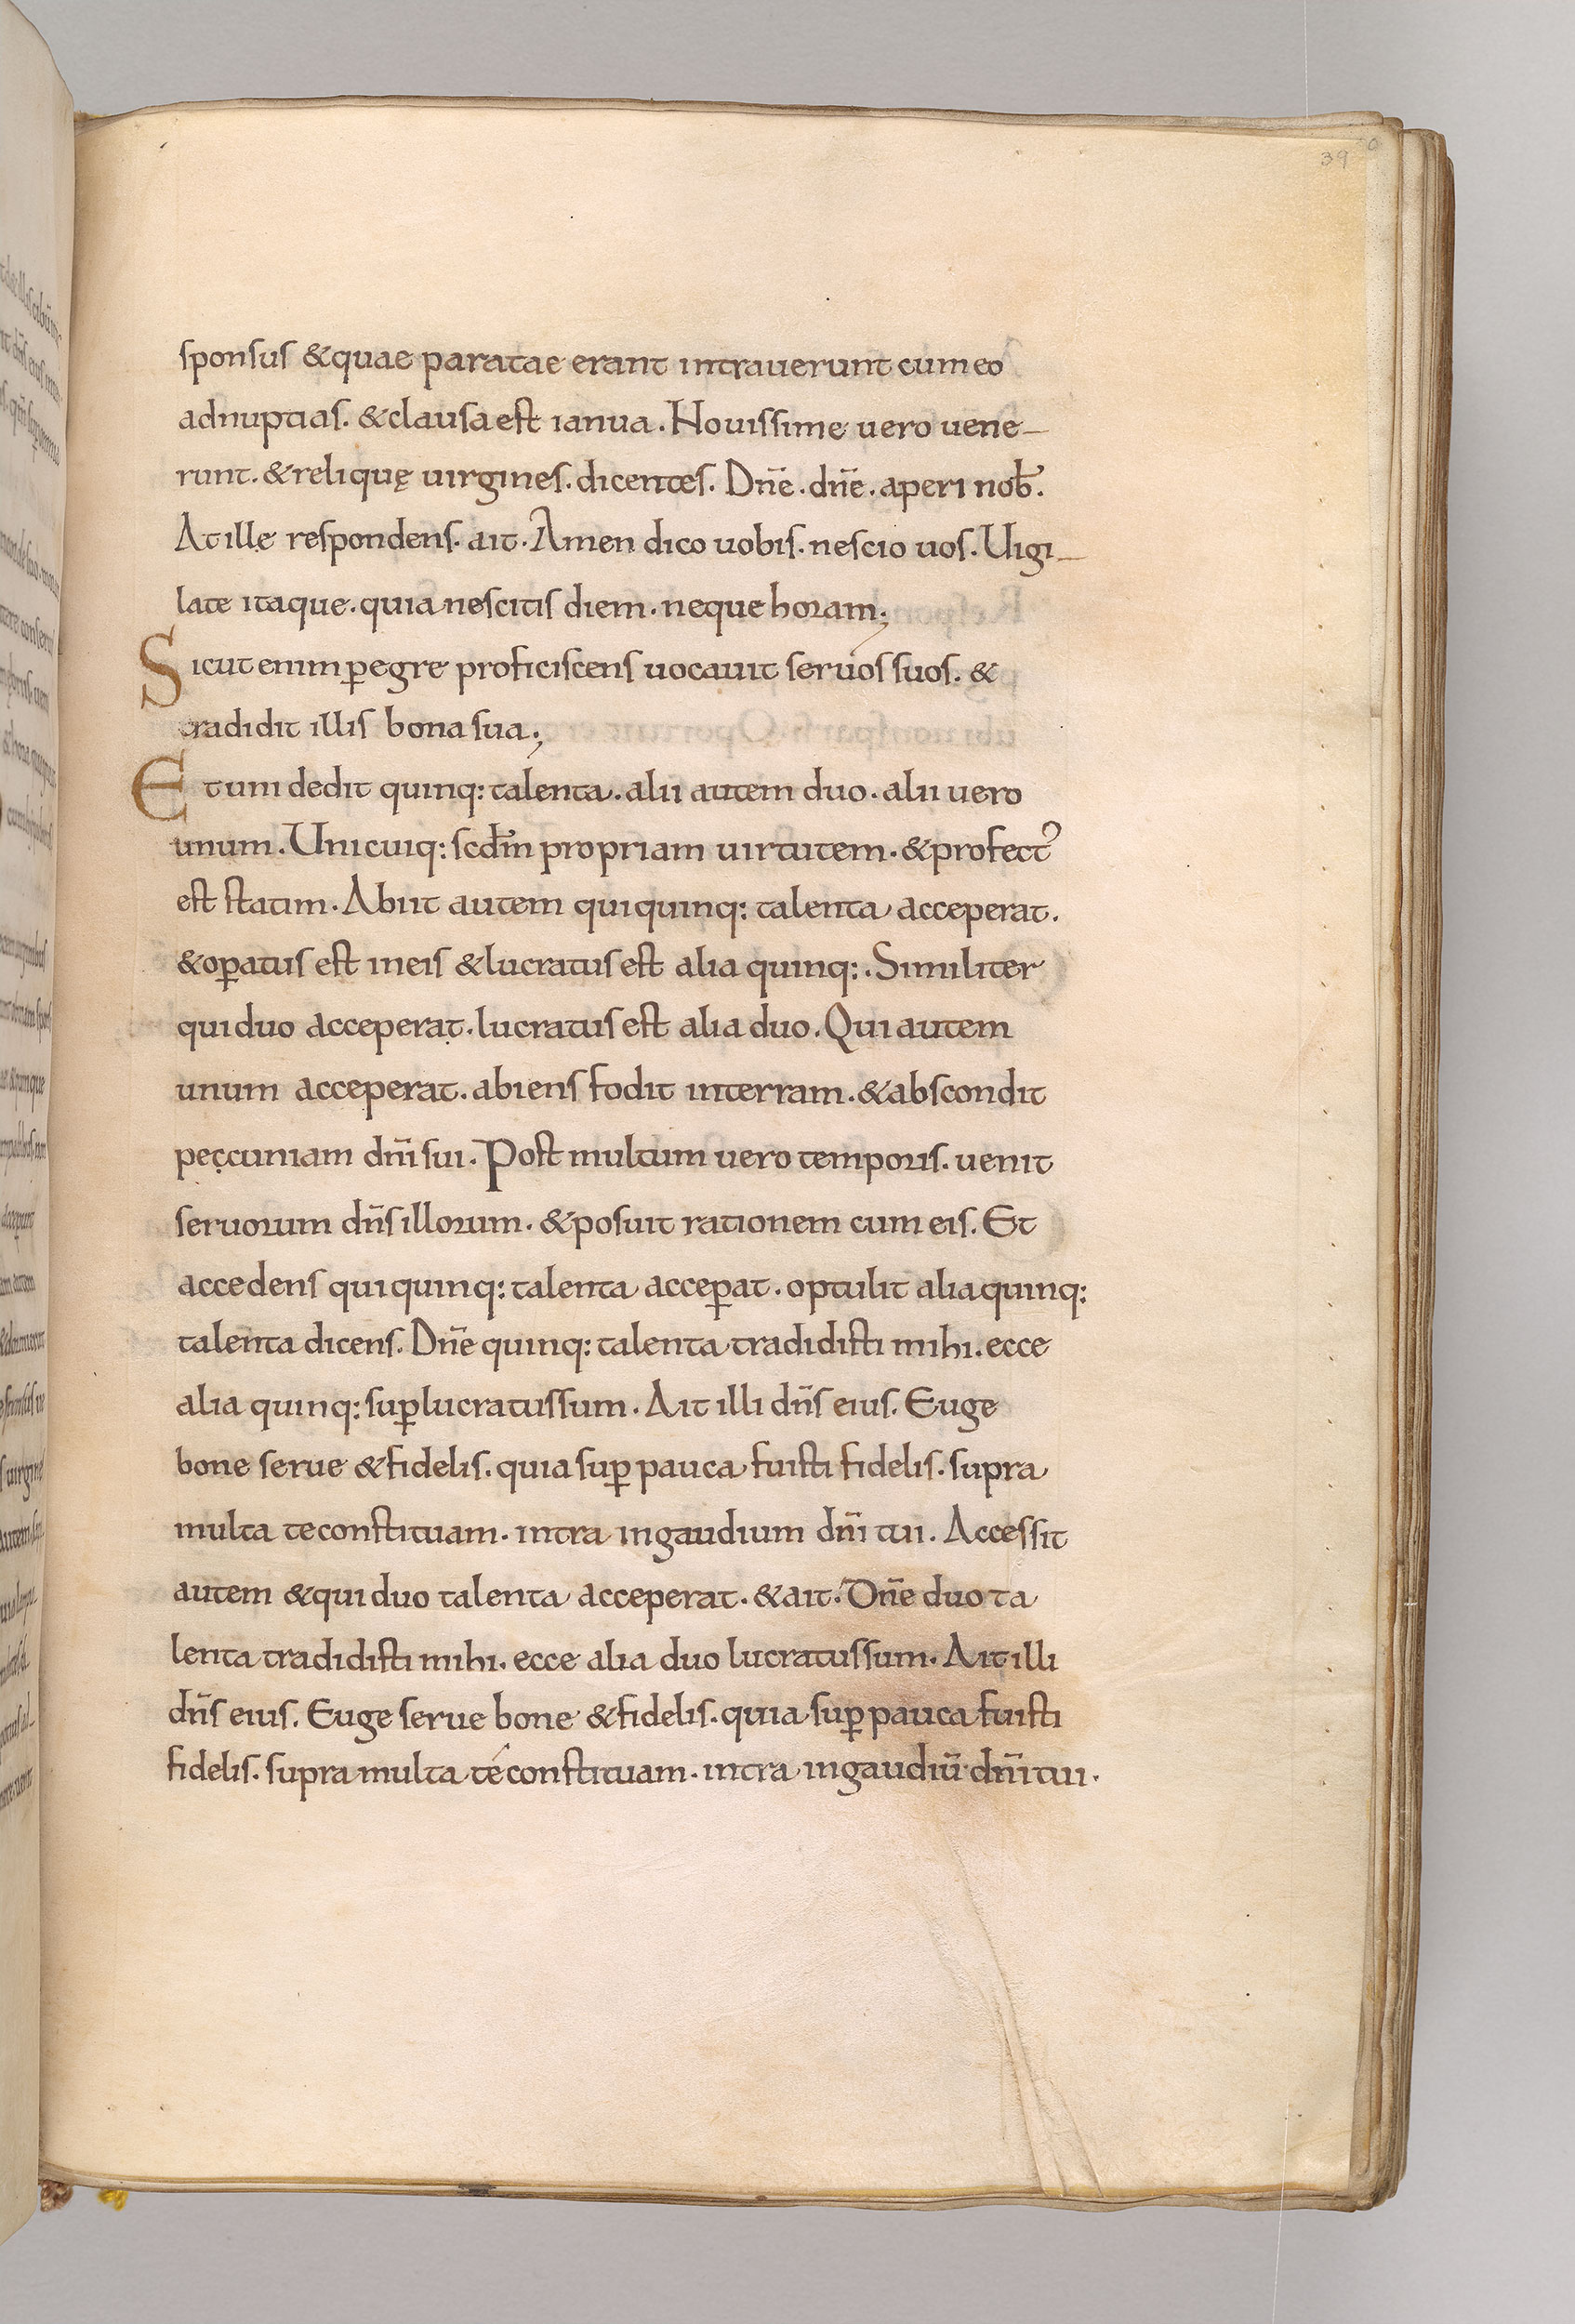 39
sponsus & quae paratae erant intrauerunt cum eo
ad nuptias. & clausa est ianua. Nouissime uero uene-
runt. & reliquę uirgines. dicentes. Dn̄e. dn̄e. aperi nob̄.
At ille respondens. ait. Amen dico uobis. nescio uos. Uigi-
late itaque. quia nescitis diem. neque horam;
Sicut enim ꝑegre proficiscens uocauit seruos suos. &
tradidit illis bona sua;
Et uni dedit quinq: talenta. alii autem duo. alii uero
unum. Unicuiq: scdm̄ propriam uirtutem. & profectꝰ
est statim. Abiit autem qui quinq: talenta acceperat.
& oꝑatus est in eis & lucratus est alia quinq:. Similiter
qui duo acceperat. lucratus est alia duo. Qui autem
unum acceperat. abiens fodit in terram. & abscondit
peccuniam dn̄i sui. Post multum uero temporis. uenit
seruorum dn̄s illorum. & posuit rationem cum eis. Et
accedens qui quinq: talenta acceꝑat. optulit alia quinq:
talenta dicens. Dn̄e quinq: talenta tradidisti mihi. ecce
alia quinq: suꝑlucratus sum. Ait illi dn̄s eius. Euge
bone serue & fidelis. quia suꝑ pauca fuisti fidelis. supra
multa te constituam. intra in gaudium dn̄i tui. Accessit
autem & qui duo talenta acceperat. & ait. Dn̄e duo ta
lenta tradidisti mihi. ecce alia duo lucratus sum. Ait illi
dn̄s eius. Euge serue bone & fidelis. quia suꝑ pauca fuisti
fidelis. supra multa te constituam. intra in gaudiū dn̄i tui.